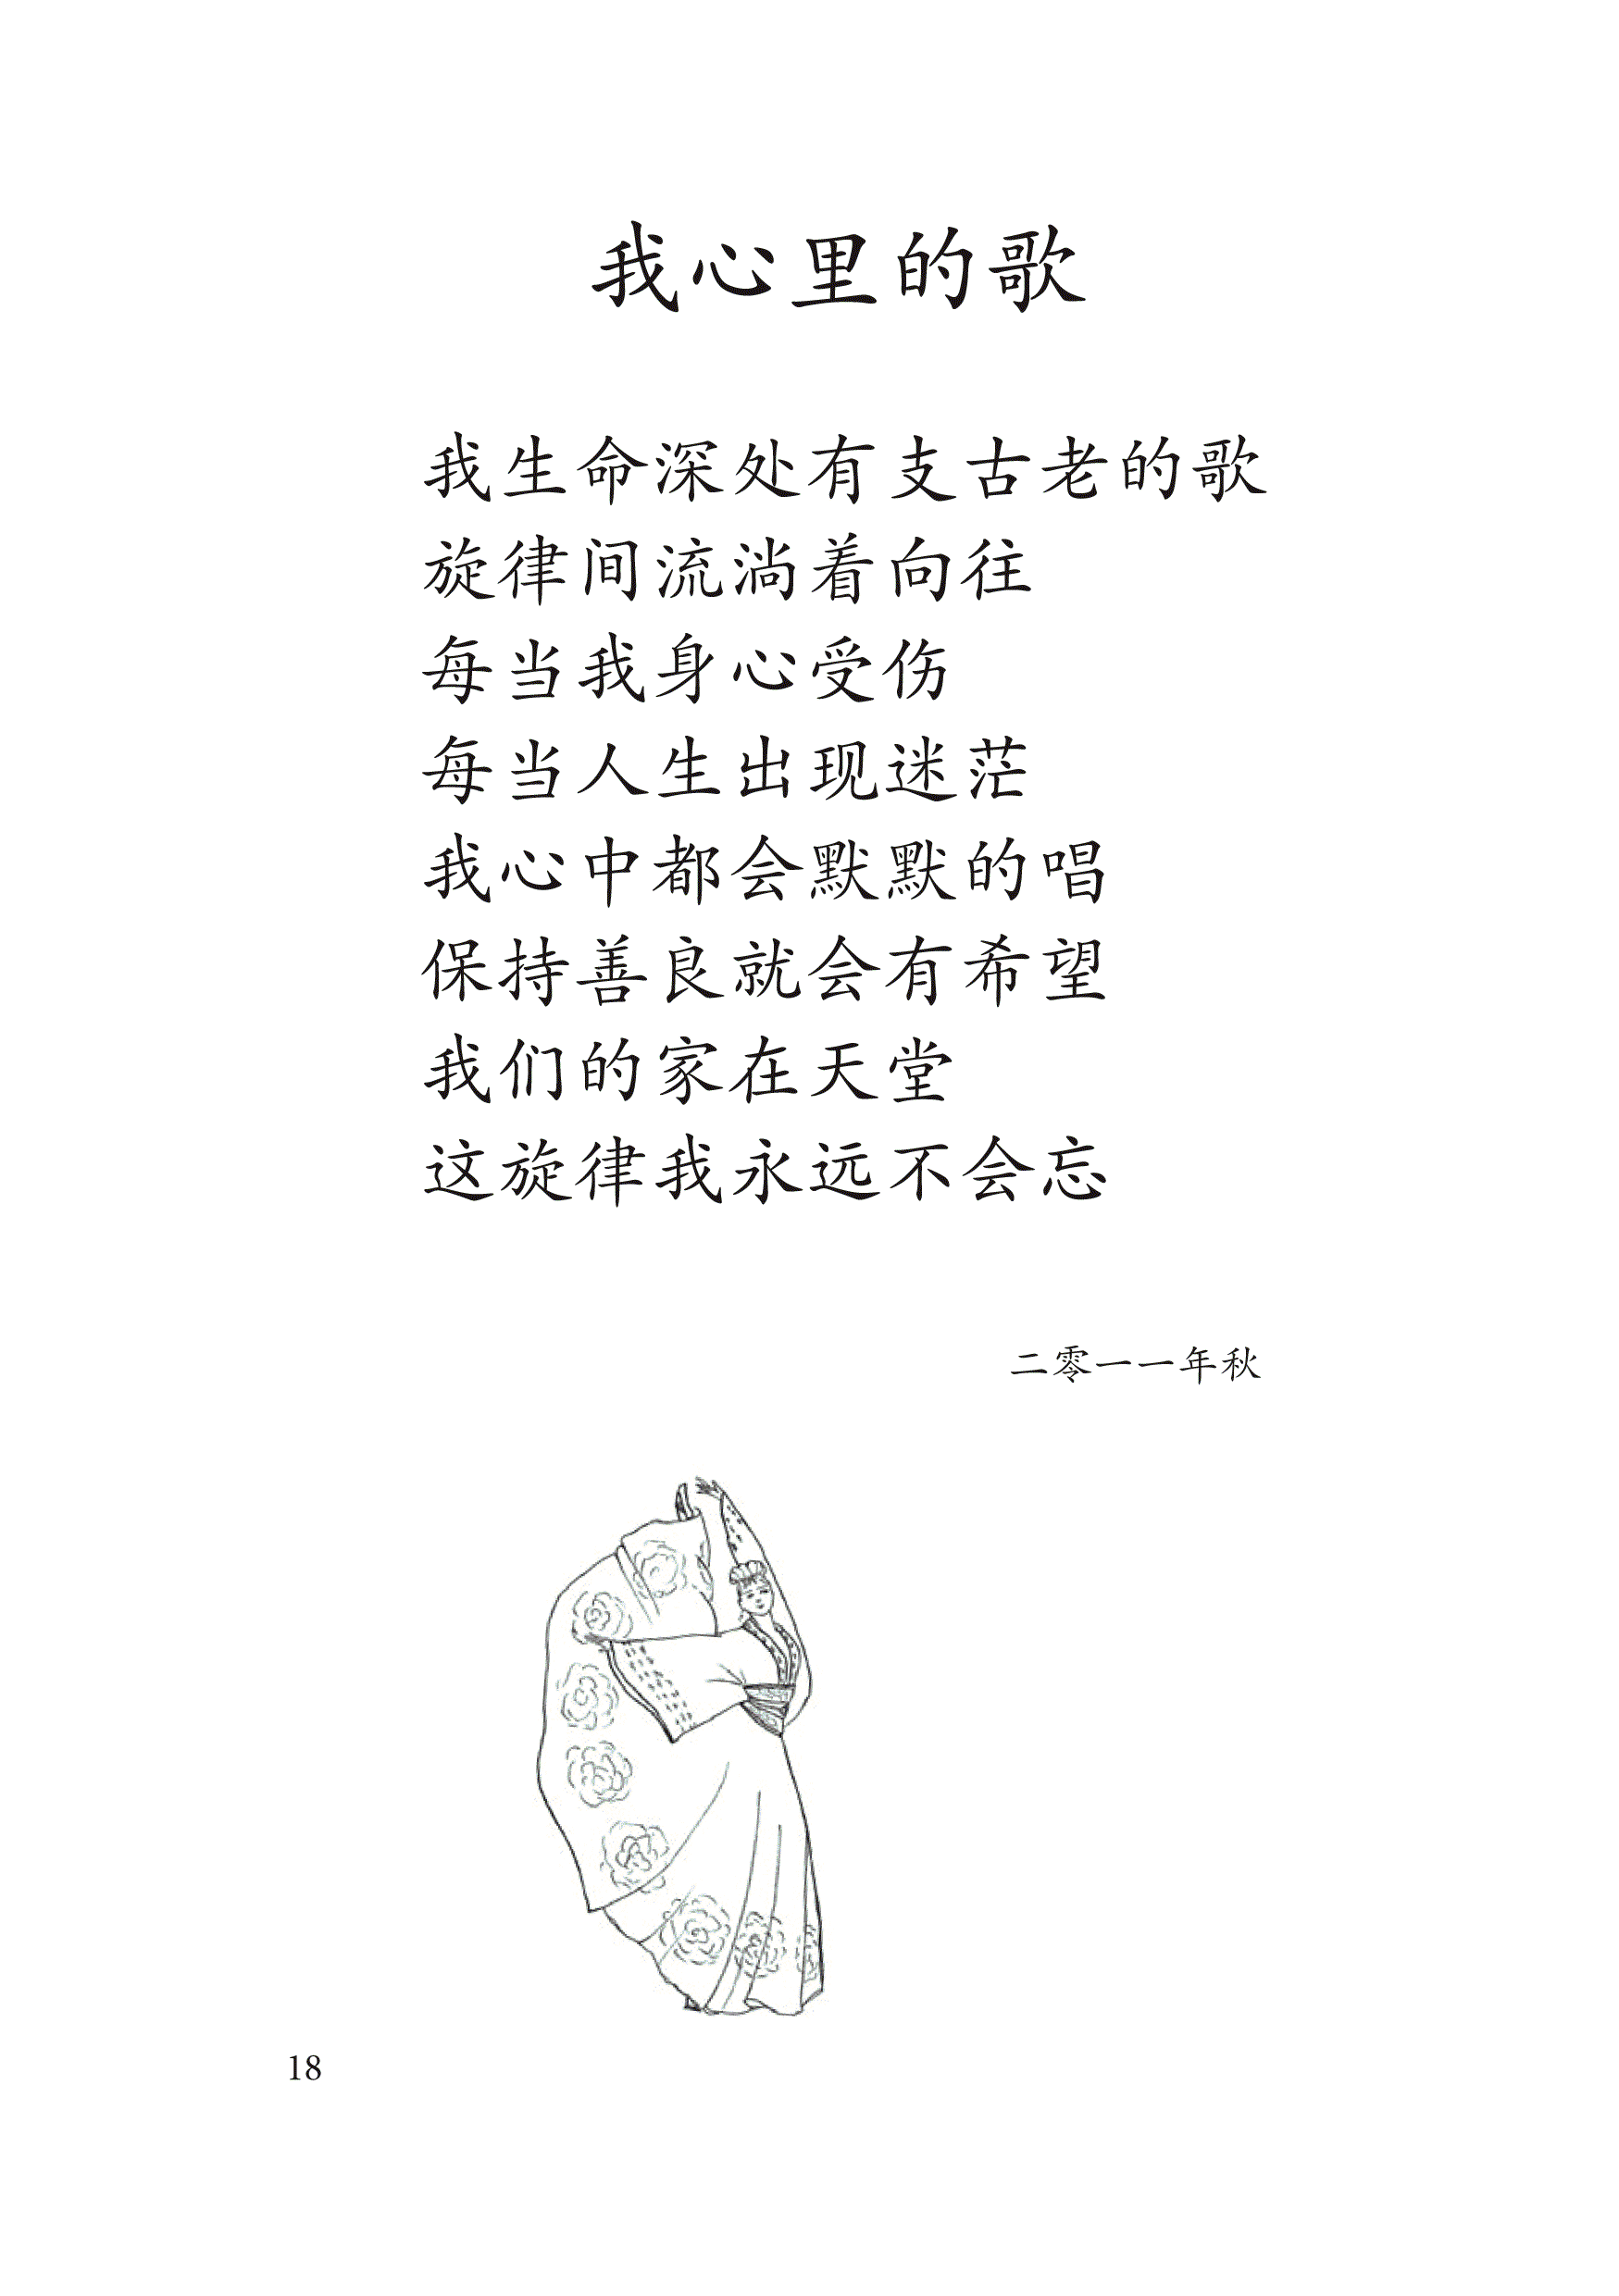 我心里的歌
我生命深处有支古老的歌
旋律间流淌着向往
每当我身心受伤
每当人生出现迷茫
我心中都会默默的唱
保持善良就会有希望
我们的家在天堂
这旋律我永远不会忘
二零一一年秋
18